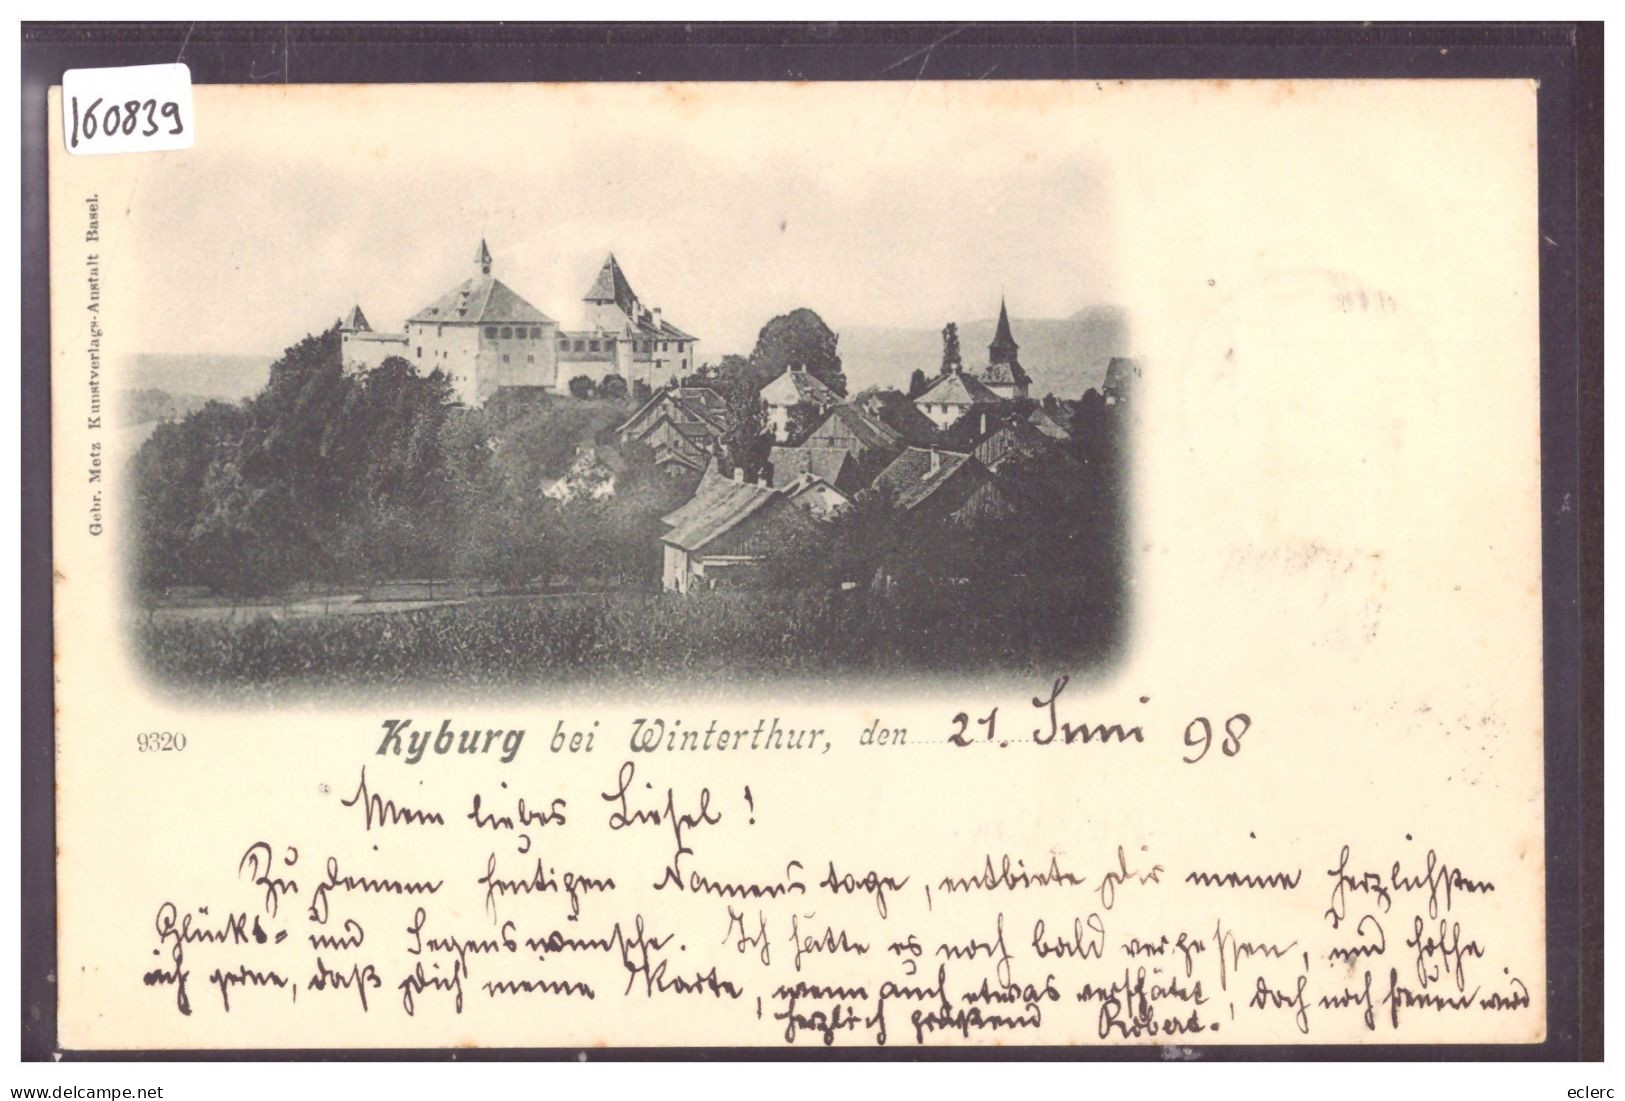 160839
Gebr. Metz Kunstverlags-Anstalt Basel.
9320
Kyburg bei Winterthur, den 21. Juni 98
Mein liebes Liesel!
Zu Deinem heutigen Namenstage, entbiete Dir meine herzlichsten
Glücks- und Segenswünsche. Ich hätte es noch bald vergessen, und hoffe
ich gerne, daß Dich meine Karte, wenn auch etwas verspätet, doch noch freuen wird
herzlich grüßend Robert.
delcampe.net
eclerc